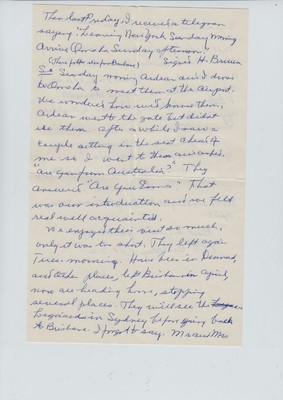 Then last Friday, I received a telegram
saying "Leaving New York Sunday morning
Arrive Omaha Sunday afternoon"
Signed H. Bruun
So Sunday morning Ardean and I drove
to Omaha to meet them at the Airport.
We wondered how we'd know them,
Ardean went to the gate but did not
see them. After a while I saw a
couple sitting in the seat ahead of
me so I went to them and asked,
"Are you from Australia?" They
answered "Are you Emma" That
was our introduction and we felt
real well acquainted.
We enjoyed their visit so much,
only it was too short. They left again
Tues. morning. Have been in Denmark,
and other places, left Brisbane in April,
now are heading home, stopping
several places. They will see the
in Sydney before going back
to Brisbane. I forgot to say. Mr and Mrs